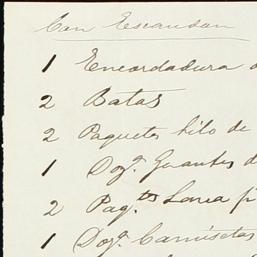 Con Escandon
1 Encordadura d
2 Batas
2 Paquetes hilo de
1 Doz.ª Guantes d
2 Paq.tes Lona p
1 Doz.ª Camisetas